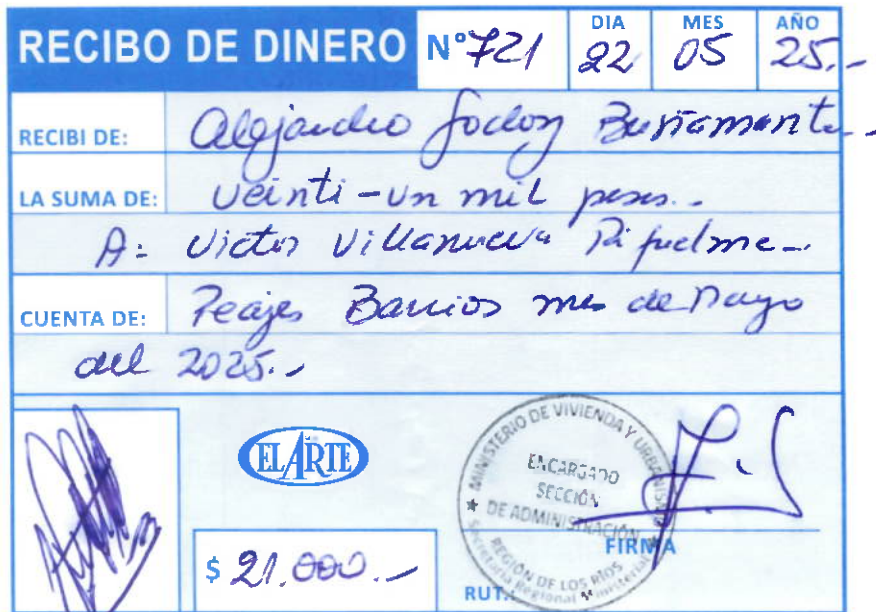 RECIBO DE DINERO N° 721 DIA 22 MES 05 AÑO 25.-
RECIBI DE: Alejandro Godoy Bustamante.-
LA SUMA DE: Veinti-un mil pesos.-
A: Victor Villanueva Riquelme.-
CUENTA DE: Peajes Barrios mes de Mayo
del 2025.-
EL ARTE
MINISTERIO DE VIVIENDA Y URBANISMO
ENCARGADO
SECCIÓN
DE ADMINISTRACIÓN
REGIÓN DE LOS RÍOS
Secretaría Regional Ministerial
FIRMA
$ 21.000.-
RUT.